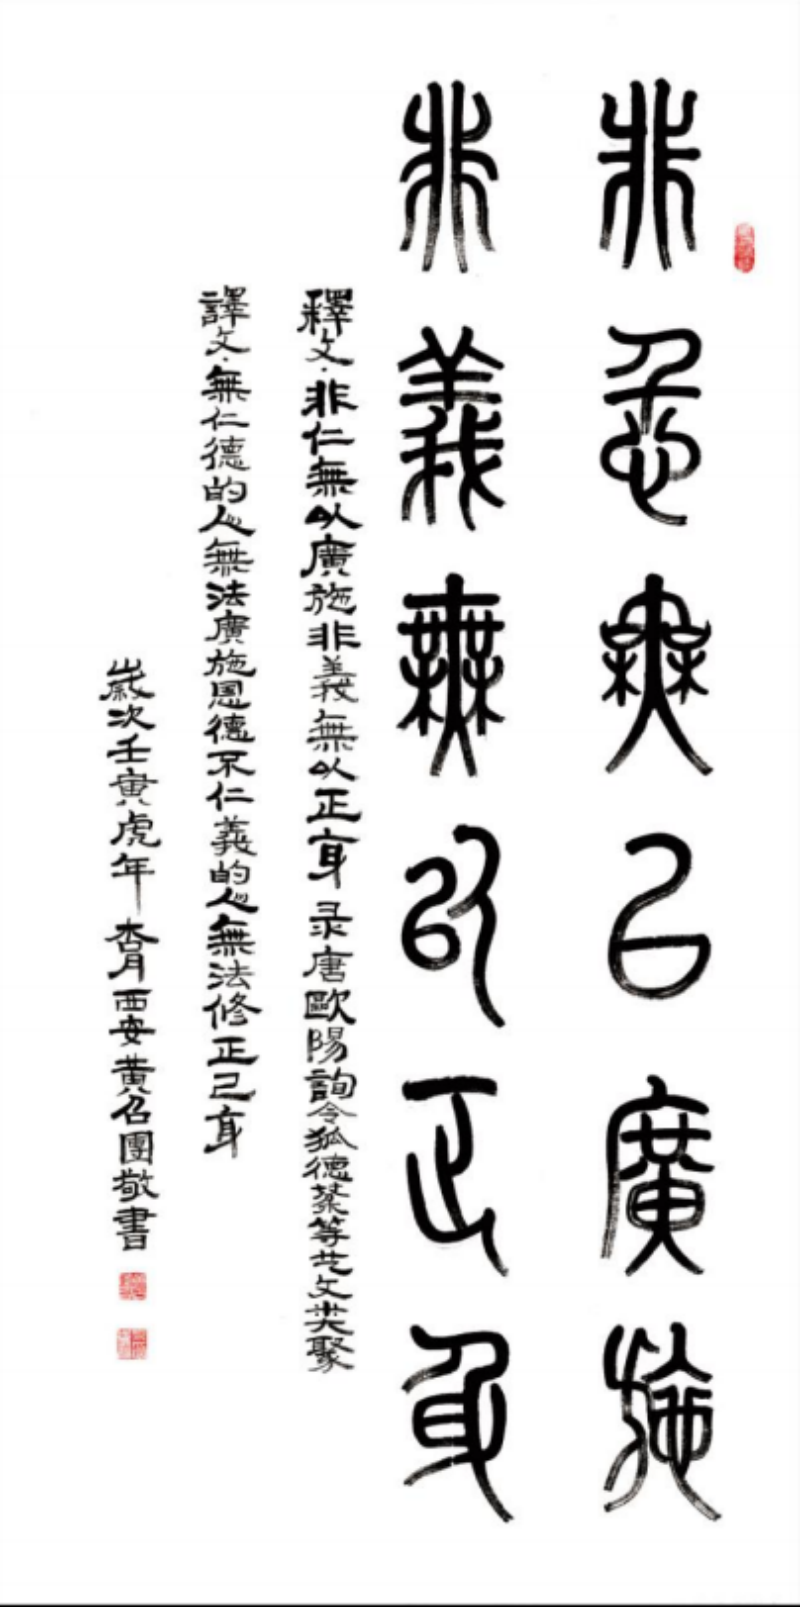 非仁無以廣施
非義無以正身
釋文·非仁無以廣施非義無以正身 录唐歐陽詢令狐德棻等艺文类聚
譯文·無仁德的人無法廣施恩德不仁義的人無法修正己身
歲次壬寅虎年 杏月西安黄召團敬書